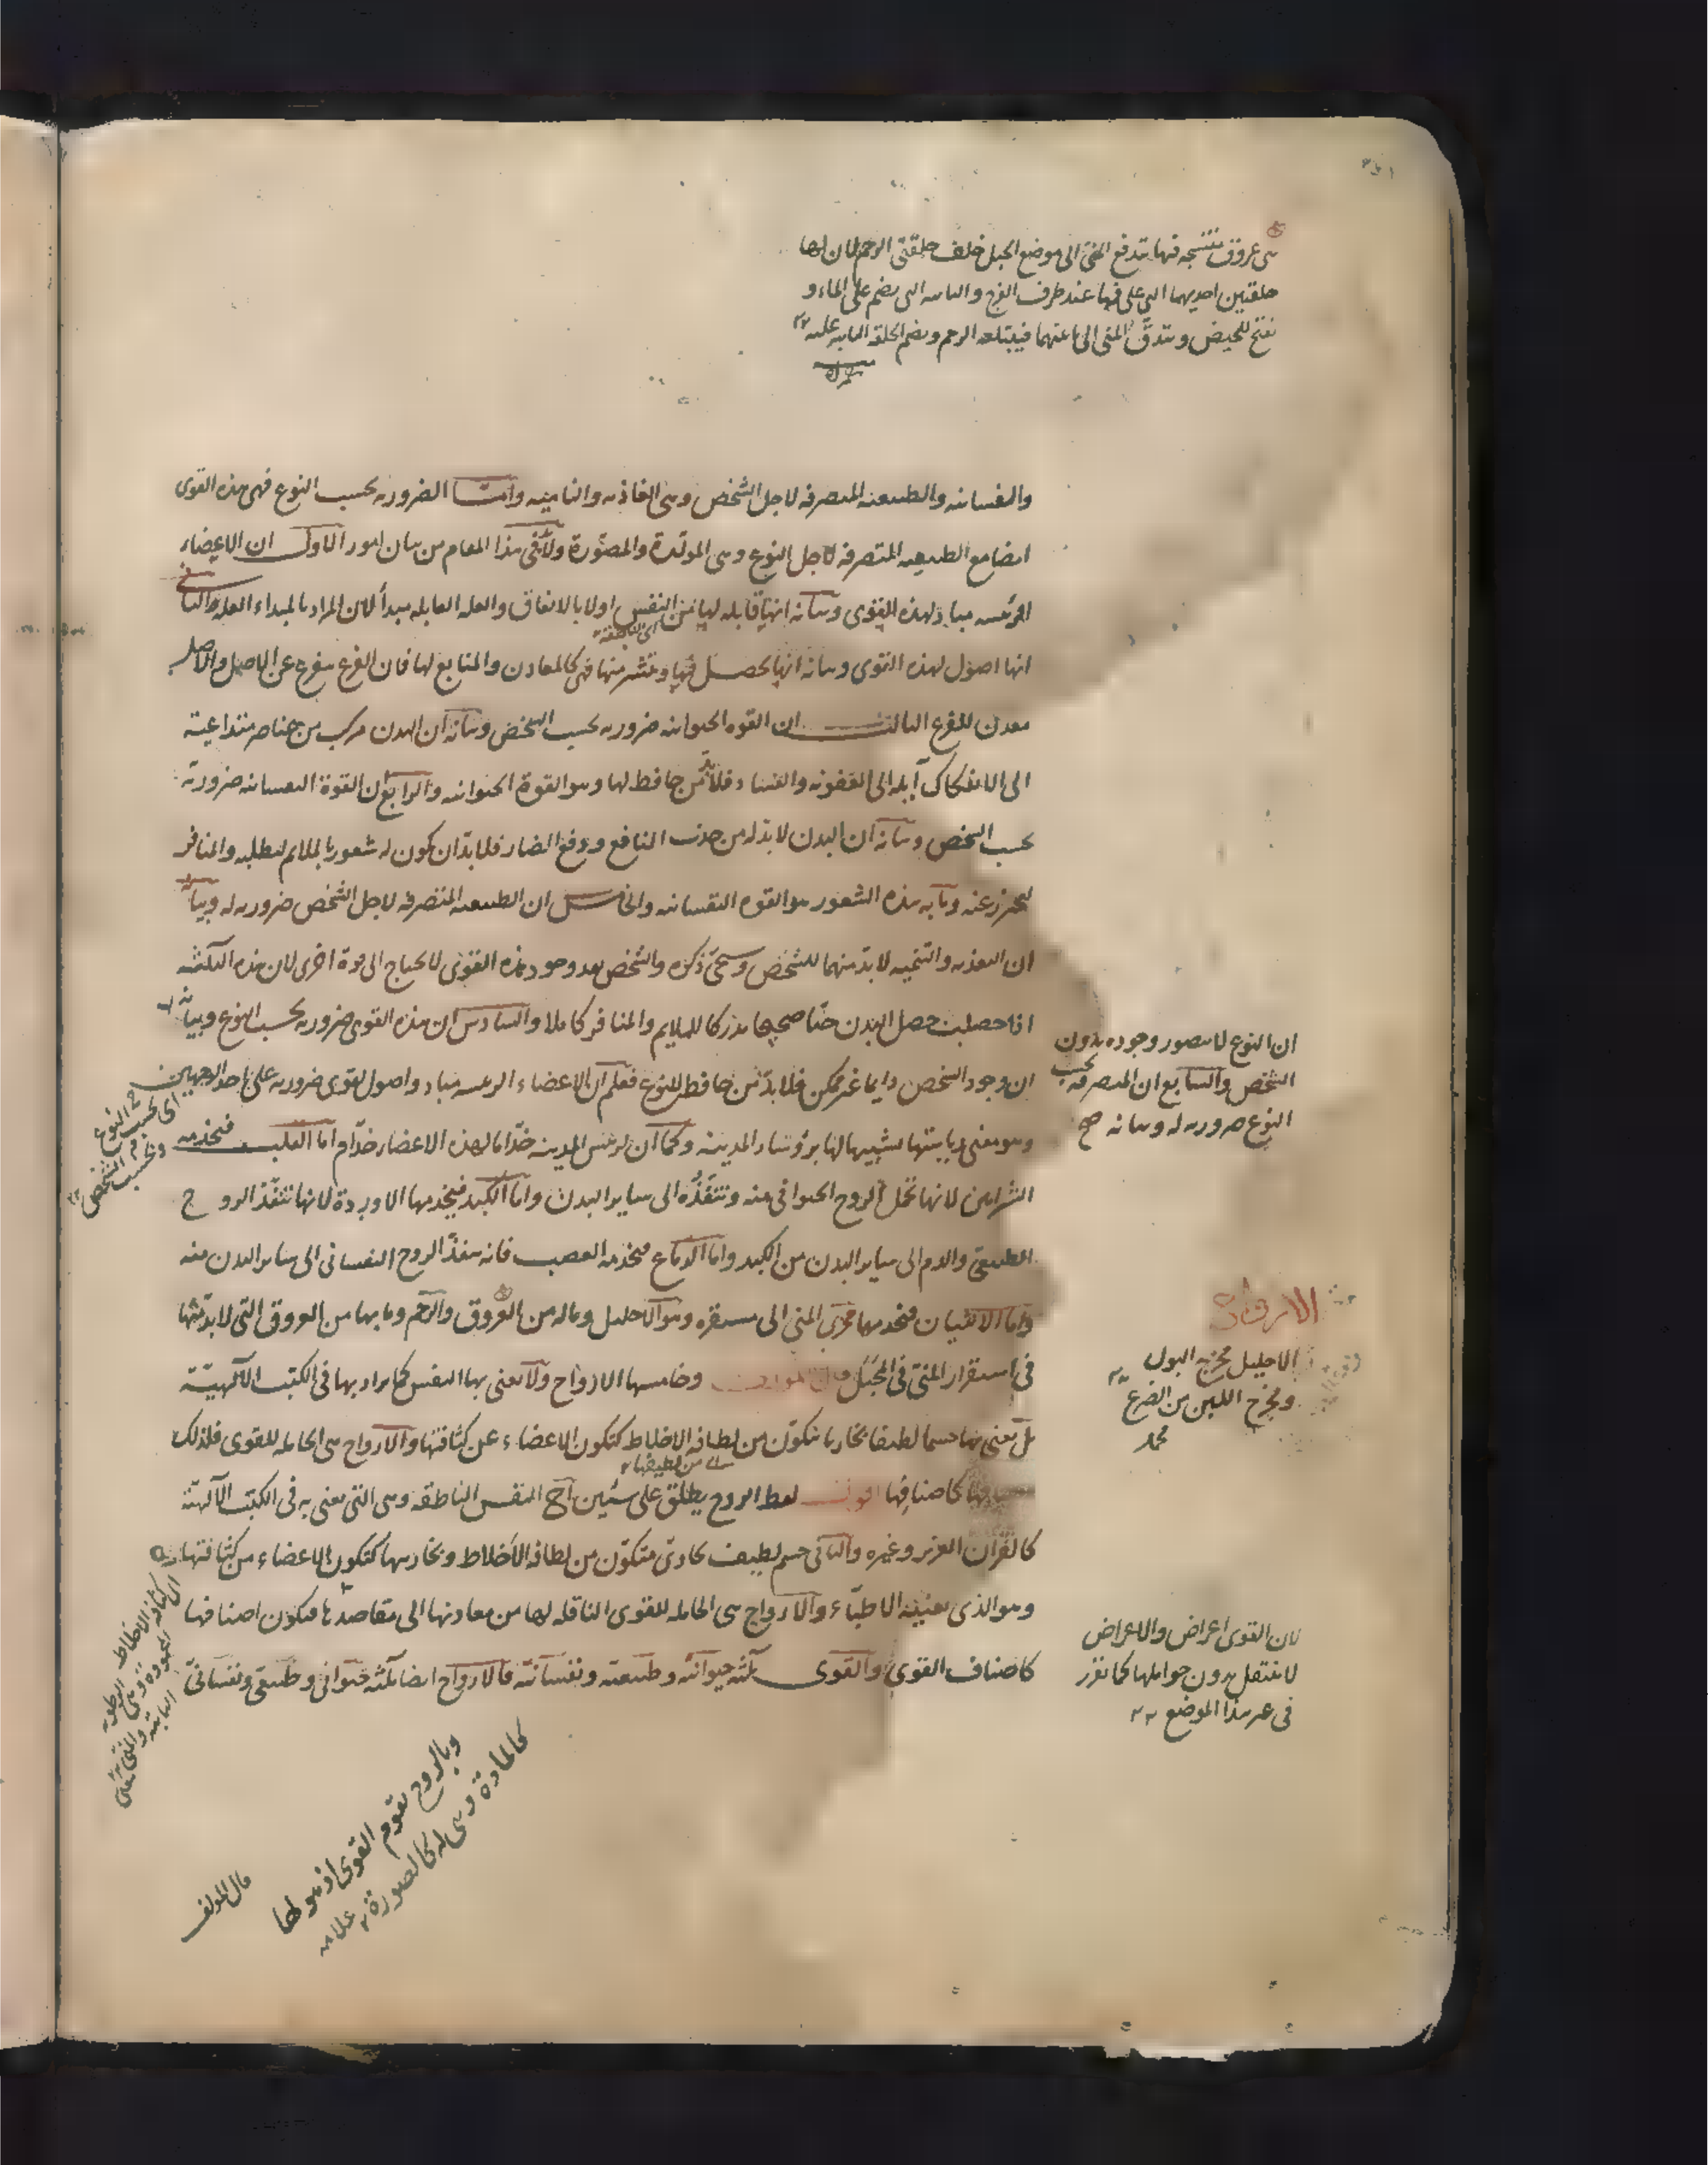 هي عروق منتسجة فيها تدفع المنى الى موضع الحبل خلف حلقتى الرحم لان لها
حلقتين احديهما التى على فمها عند طرف الفرج والثانية التى تضم على الماء و
تفتح للحيض ويتدفق المنى الى ما بينهما فيبتلعه الرحم وتضم الحلقة الثانية عليه
والنفسانيه والطبيعيه المتصرفه لاجل الشخص وهى الغاذيه والناميه وامّا الضروريه بحسب النوع فهى هذه القوى
ايضا مع الطبيعيه المتصرفه لاجل النوع وهى المولّدة والمصوّرة ولا بد فى هذا المقام من بيان امور الاول ان الاعضاء
الرئيسه مباد لهذه القوى وبيانه انها قابله لها من النفس اولا بالاتفاق والعله القابله مبدأ لان المراد بالمبداء العله والثانى
اى الناطقة
انها اصول لهذه القوى وبيانه انها يحصل فيها وتنتشر منها فهى كالمعادن والمنابع لها فان الفرع يتفرع عن الاصل والاصل
معدن للفرع الثالث ان القوه الحيوانيه ضروريه بحسب الشخص وبيانه ان البدن مركب من عناصر متداعية
الى الانفكاك آيله الى العفونه والفساد فلا بد من حافظ لها وهو القوة الحيوانيه والرابع ان القوة النفسانيه ضروريّه
بحسب الشخص وبيانه ان البدن لا بد له من جذب النافع ودفع الضار فلا بد ان يكون له شعور بالملايم ليطلبه والمنافر
ليحترز عنه وما به هذه الشعور هو القوه النفسانيه والخامس ان الطبيعيه المتصرفه لاجل الشخص ضروريه له وبيانه
ان التغذيه والتنميه لا بد منهما للشخص وسيجئ ذكره والشخص بعد وجود هذه القوى لا يحتاج الى قوة اخرى لان هذه الثلثه
اذا حصلت حصل البدن حيّا صحيحا مدركا للملايم والمنافر كاملا والسادس ان هذه القوى ضروريه بحسب النوع وبيانه
ان النوع لا يتصور وجوده بدون
الشخص والسابع ان المتصرفه بحسب
النوع ضروريه له وبيانه صح
ان وجود الشخص دايما غير ممكن فلا بد من حافظ للنوع فعلم ان الاعضاء الرئيسه مباد واصول لقوى ضروريه على احد الوجهين
اى بحسب النوع
وبحسب الشخص
وهو معنى رياستها تشبيها لها برؤساء المدينه وكما ان لرئيس المدينه خدّاما لهذه الاعضاء خدّام اما القلب فيخدمه
الشرايين لانها تحمل الروح الحيوانى منه وتنفّذه الى ساير البدن واما الكبد فيخدمها الاوردة لانها تنفّذ الروح
الطبيعى والدم الى ساير البدن من الكبد واما الدماغ فيخدمه العصب فانه ينفذ الروح النفسانى الى ساير البدن منه
واما الانثيان فيخدمها مجرى المنى الى مستقره وهو الاحليل وماله من العروق والرحم وما بها من العروق التى لا بد منها
الارواح
الاحليل مخرج البول
ومخرج اللبن من الضرع
محمد
فى استقرار المنى فى الحبل قال المولف وخامسها الارواح ولا نعنى بها النفس كما يراد بها فى الكتب الالهيّة
بل نعنى بها جسما لطيفا بخاريا يتكوّن من لطافه الاخلاط كتكون الاعضاء عن كثافتها والارواح هى الحامله للقوى فلذلك
اصنافها كاصنافها اقول لفظ الروح يطلق على شيئين آح النفس الناطقه وهى التى يعنى به فى الكتب الالهيّة
كالقرآن العزيز وغيره والثانى جسم لطيف بخارى متكوّن من لطافه الاخلاط وبخاريتها كتكون الاعضاء من كثافتها
وهو الذى يعنيه الاطبّاء والارواح هى الحامله للقوى الناقله لها من معادنها الى مقاصدها فيكون اصنافها
كاصناف القوى والقوى ثلثه حيوانيّه وطبيعيّه ونفسانيّه فالارواح ايضا ثلثه حيوانى وطبيعى ونفسانىّ
لان القوى اعراض والاعراض
لا ينتقل بدون حواملها كما تقرر
فى غير هذا الموضع
وبالروح تقوم القوى اذ هو لها
كالمادة وهى له كالصورة
قال المولف